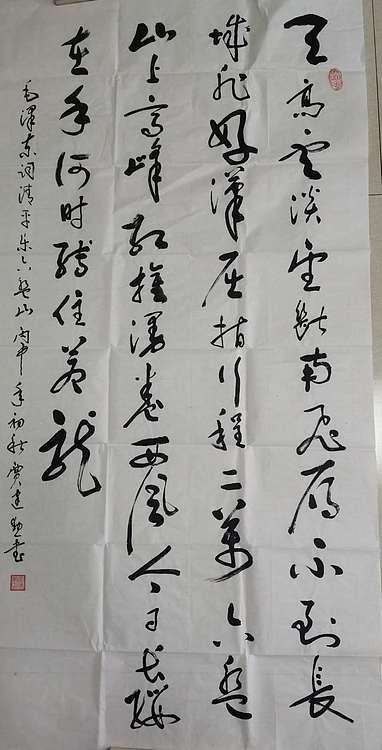 天高雲淡望斷南飛雁不到長
城非好漢屈指行程二萬六盤
山上高峰紅旗漫卷西風今日長纓
在手何时縛住蒼龍
毛澤東詞清平樂六盤山丙申年初秋賈建書